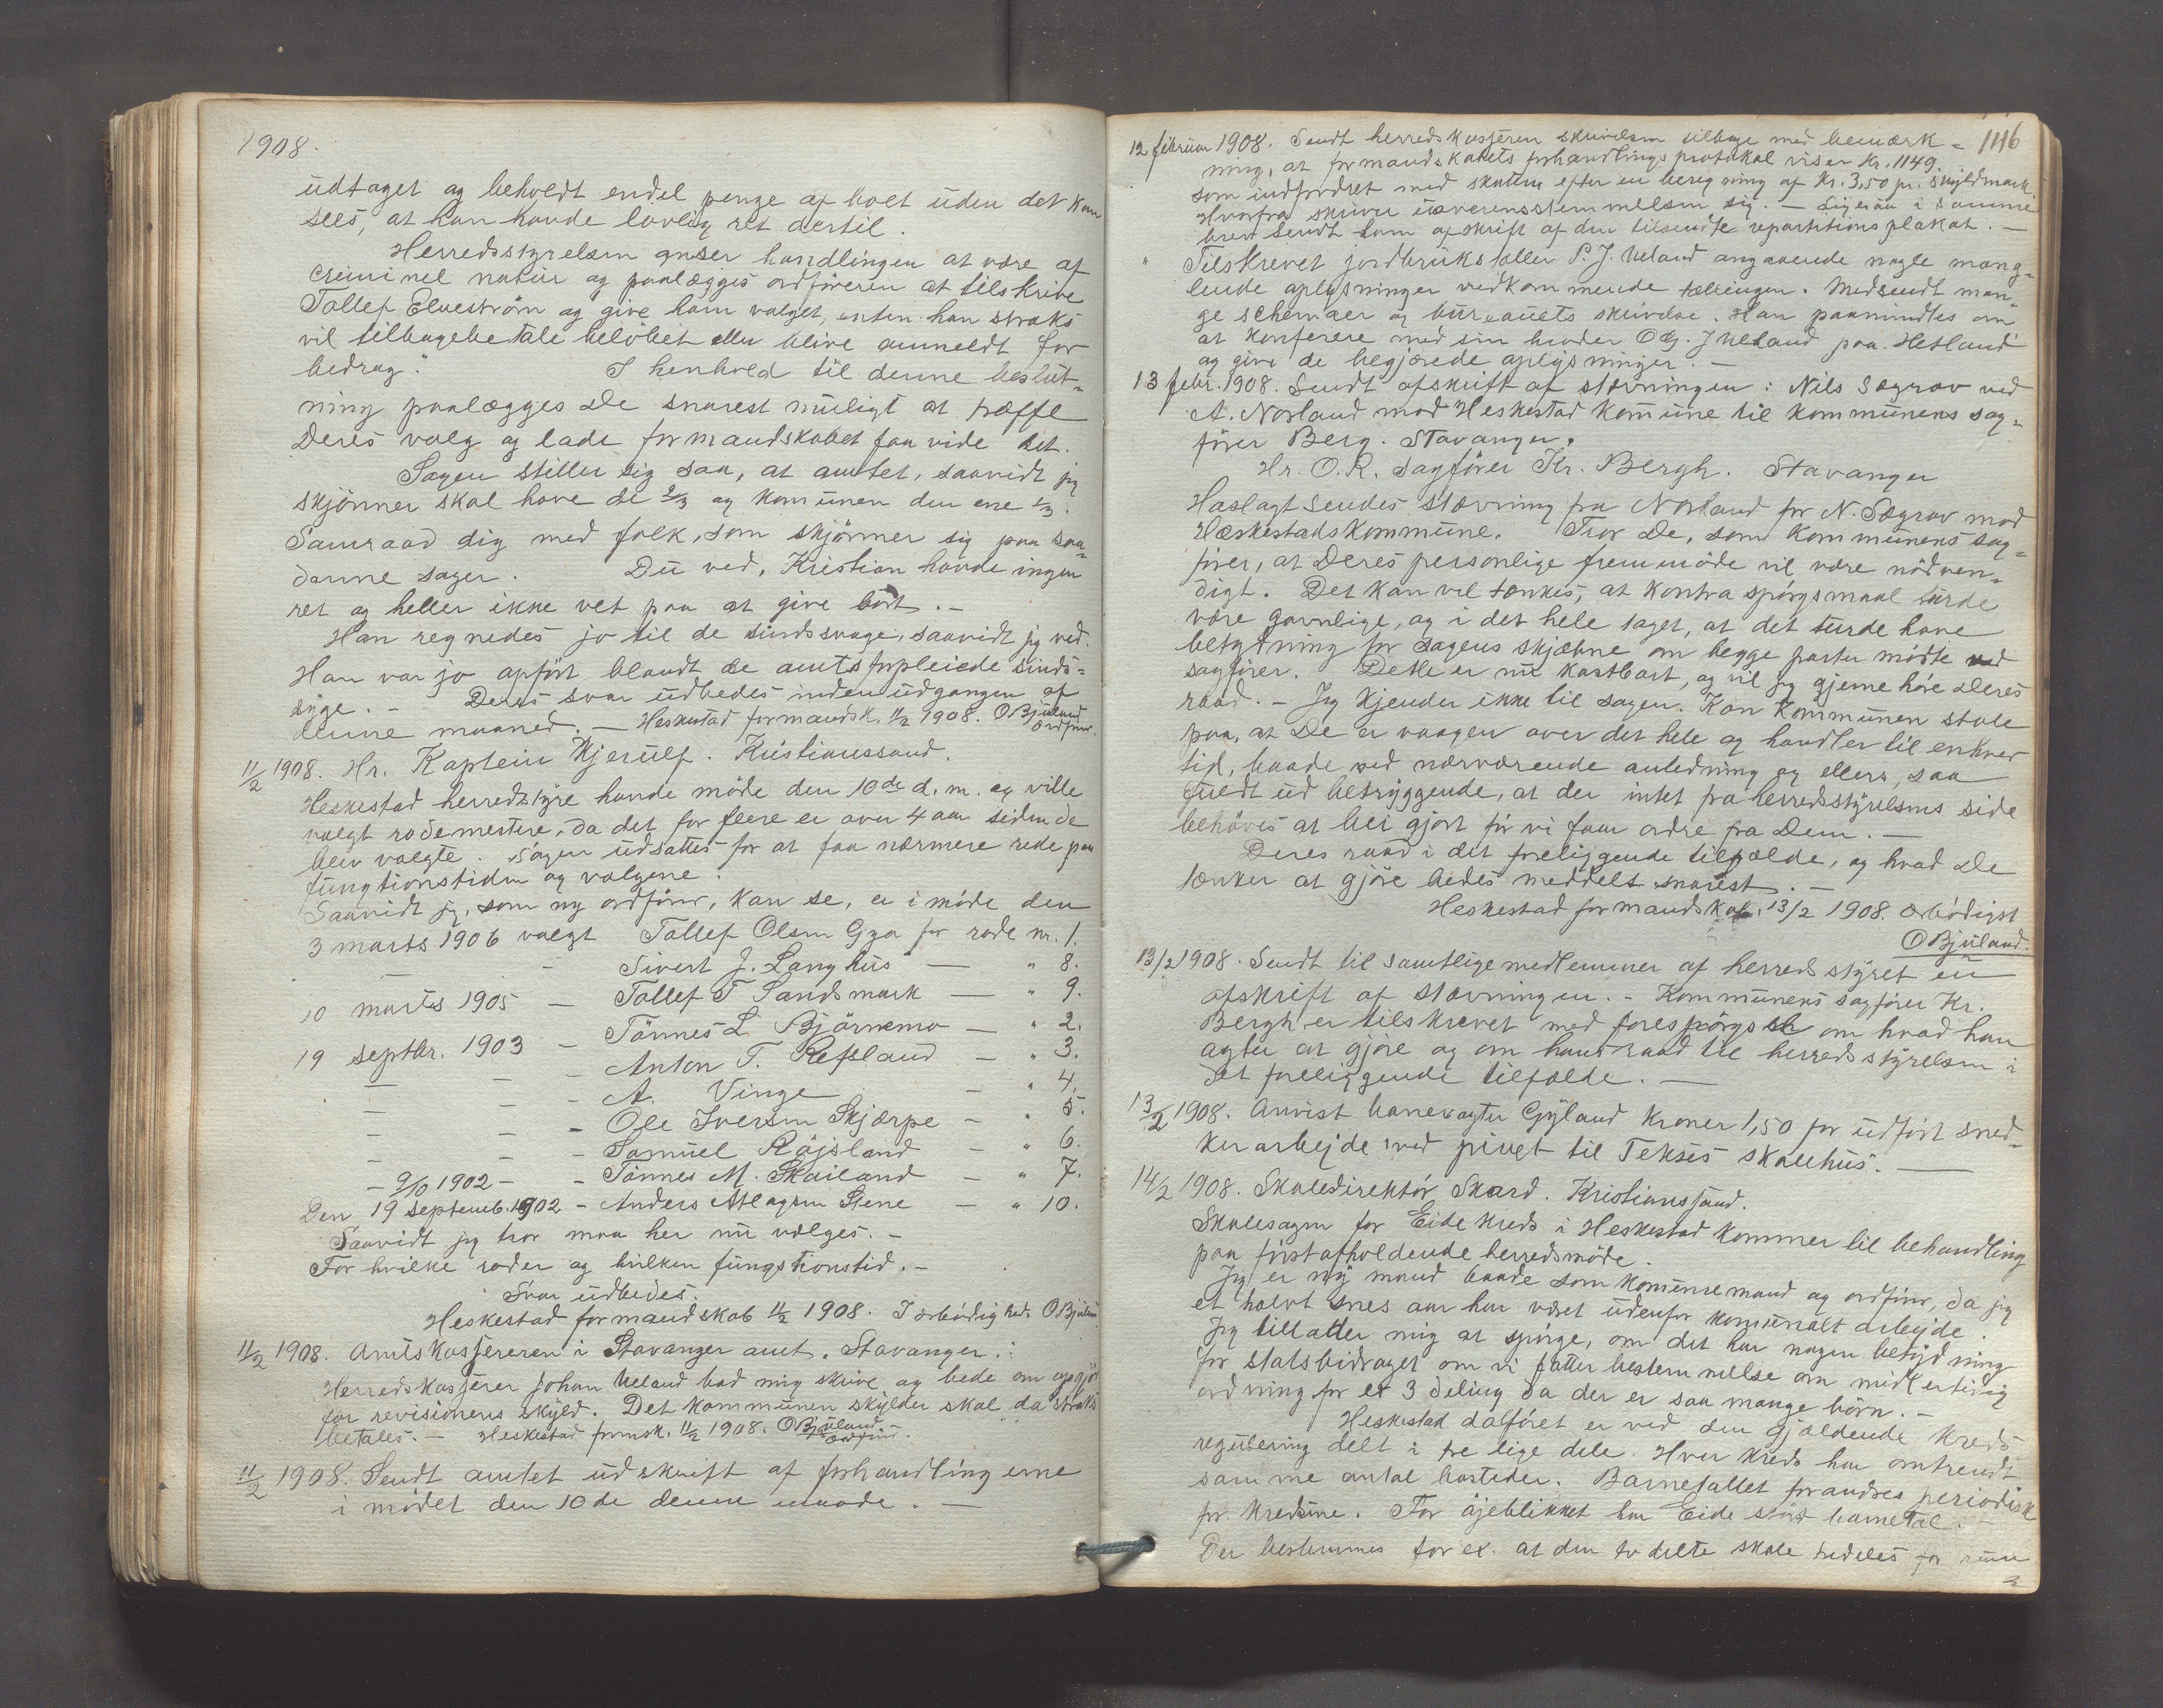 1908.
udtaget og beholdt endel penge af boet uden det kan
sees, at han havde lovlig ret dertil.
Herredsstyrelsen anser handlingen at være af
criminel natur og paalægges ordföreren at tilskrive
Tollef Elveström og give ham valget, enten han straks
vil tilbagebetale belöbet eller blive anmeldt for
bedrag". I henhold til denne beslut-
ning paalægges De snarest muligt at træffe
Deres valg og lade formandskabet faa vide det.
Sagen stiller sig saa, at amtet, saavidt jeg
skjönner skal have de 2/3 og komunen den ene 1/3.
Samraad dig med folk, som skjönner sig paa saa-
danne sager. Du ved, Kristian havde ingen
ret og heller ikke vet paa at give bort. –
Han regnedes jo til de sindssvage, saavidt jeg ved.
Han var jo opfört blandt de amtsforpleiede sinds-
syge. – Deres svar udbedes inden udgangen af
denne maaned. – Heskestad formandsk. 11/2 1908. O Bjuland
ordförer.
11/2 1908. Hr. Kaptein Kjerulf. Kristianssand.
Heskestad herredstyre havde möde den 10de d. m. og ville
valgt rodemestere, da det for flere er over 4 aar siden de
blev valgte. Sagen udsattes for at faa nærmere rede paa
fungtionstiden og valgene.
Saavidt jeg, som ny ordförer, kan se, er i möde den
3 marts 1906 valgt Tollef Olsen Gya for rode nr. 1.
— - Sivert J. Langhus — " 8.
10 marts 1905 — Tollef T Sandsmark — " 9.
19 septbr. 1903 – Tönnes L. Björnemo — " 2.
— - - Anton T. Refsland — " 3.
— - - A. Vinge — " 4.
— - - Ole Iversen Skjærpe — " 5.
— - - Samuel Röjsland — " 6.
- 9/10 1902 - - Tönnes M. Skailand — " 7.
Den 19 septemb. 1902 - Anders Atlagsen Stene — " 10.
Saavidt jeg tror maa her nu vælges. –
For hvilke roder og hvilken fungtionstid. –
Svar udbedes.
Heskestad formandskab 11/2 1908. I ærbödighed. O Bjuland
11/2 1908. Amtskassereren i Stavanger amt. Stavanger.
Herredskasserer Johan Ueland bad mig skrive og bede om opgjör
for revisionens skyld. Det kommunen skylder skal da straks
betales. – Heskestad formsk. 11/2 1908. O Bjuland
ordförer.
11/2 1908. Sendt amtet udskrift af forhandlingerne
i mödet den 10de denne maade. —
1146
12 februar 1908. Sendt herredskasseren skrivelsen tilbage med bemærk-
ning, at formandskabets forhandlingsprotokol viser Kr. 1149.
som indfordret med skatten efter en beregning af Kr. 3,50 pr. skyldmark.
Hvorfra skriver uoverensstemmelsen sig. – Ligesaa i samme
brev sendt ham afskrift af den tilsendte repartitionsplakat. –
" Tilskrevet jordbrukstæller P. J. Ueland angaaende nogle mang-
lende oplysninger vedkommende tællingen. Medsendt man-
ge schemaer og bureauets skrivelse. Han paamindtes om
at konferere med sin broder O. J Ueland paa Hetland
og give de begjærede oplysninger. –
13 febr. 1908. Sendt afskrift af stævningen: Nils Sægrov ved
A. Norland mod Heskestad Komune til kommunens sag-
förer Berg. Stavanger.
Hr. O. R. Sagförer Kr. Bergh. Stavanger
Haslagt sendes stævning fra Norland for N. Sægrov mod
Hæskestads kommune. Tror De, som kommunens sag-
förer, at Deres personlige fremmöde vil være nödven-
digt. Det kan vel tænkes, at kontra spörgsmaal turde
være gavnlige, og i det hele taget, at det turde have
betydning for sagens skjæbne om begge parter mödte ved
sagförer. Dette er nu kostbart, og vil jeg gjerne höre Deres
raad. – Jeg kjender ikke til sagen. Kan kommunen stole
paa, at De er vaagen over det hele og handler til enhver
tid, baade ved nærværende anledning og ellers, saa
fuldt ud betryggende, at der intet fra herredsstyrelsens side
behöves at bli gjort för vi faar ordre fra Dem. –
Deres raad i det foreliggende tilfælde, og hvad De
tænker at gjöre bedes meddelt snarest. –
Heskestad formandskab, 13/2 1908. ærbödigst
O Bjuland.
13/2 1908. Sendt til samtlige medlemmer af herredsstyret en
afskrift af stævningen. – Kommunens sagförer Kr.
Bergh er tilskrevet med forespörgsel om hvad han
agter at gjöre og om hans raad til herredsstyrelsen i
det foreliggende tilfælde. —
13/2 1908. Anvist banevagter Gyland Kroner 1,50 for udfört sned-
kerarbejde ved privet til Tekses skolehus. —
14/2 1908. Skoledirektör Skard. Kristianssand.
Skolesagen for Eide Kreds i Heskestad kommer til behandling
paa förstafholdende herredsmöde.
Jeg er ny mand baade som komunemand og ordförer, da jeg
et halvt snes aar har været udenfor komunalt arbejde.
Jeg tillader mig at spörge, om det har nogen betydning
for statsbidraget om vi fatter bestemmelse om midlertidig
ordning for ex 3 deling da der er saa mange börn. –
Heskestad dalföret er ved den gjældende kreds-
regulering delt i tre lige dele. Hver kreds har omtrendt
samme antal bosteder. Barnetallet forandres periodisk
for kredsene. For öjeblikket har Eide störst barnetal. –
Der bestemmes for ex. at den todelte skole tredeles for